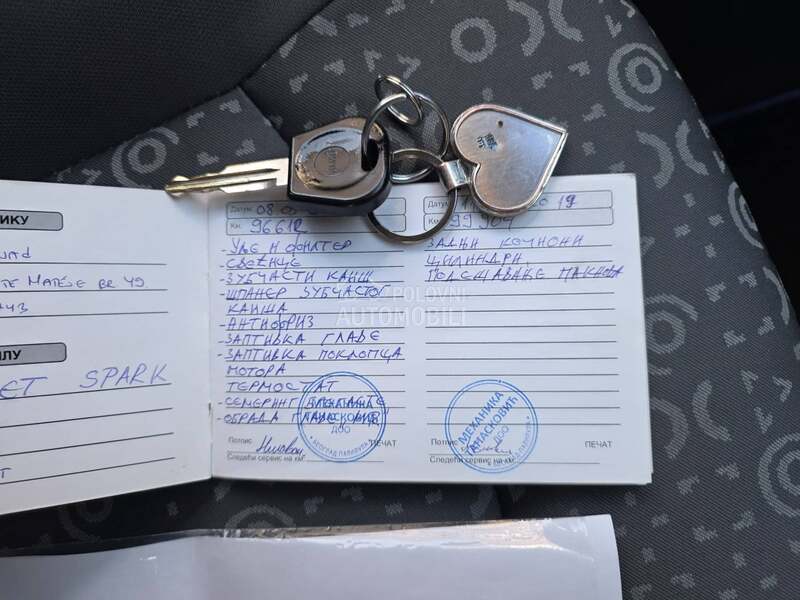 ИКУ
ТЕ МАТЕЈЕ БР 49.
ИЛУ
ЕТ SPARK
Датум 08
Км. 96612
-УЉЕ И ФИЛТЕР
-СВЕЋИЦЕ
-ЗУПЧАСТИ КАИШ
-ШПАНЕР ЗУБЧАСТОГ
КАИША
-АНТИФРИЗ
-ЗАПТИВКА ГЛАВЕ
-ЗАПТИВКА ПОКЛОПЦА
МОТОРА
ТЕРМОСТАТ
-СЕМЕРИНГ
-ОБРАДА ГЛАВЕ
Потпис
ПЕЧАТ
Следећи сервис на км
МЕХАНИКА
ТАНАСКОВИЋ
ДОО
Датум 19
Км. 99904
ЗАДЊИ КОЧИОНИ
ЦИЛИНДРИ
ПОДЕШАВАЊЕ ПАКНОВА
Потпис
ПЕЧАТ
Следећи сервис на км
МЕХАНИКА
ТАНАСКОВИЋ
ДОО
POLOVNI
AUTOMOBILI